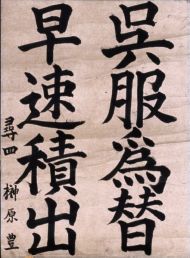 呉服為替
早速積出
尋四 榊原豊